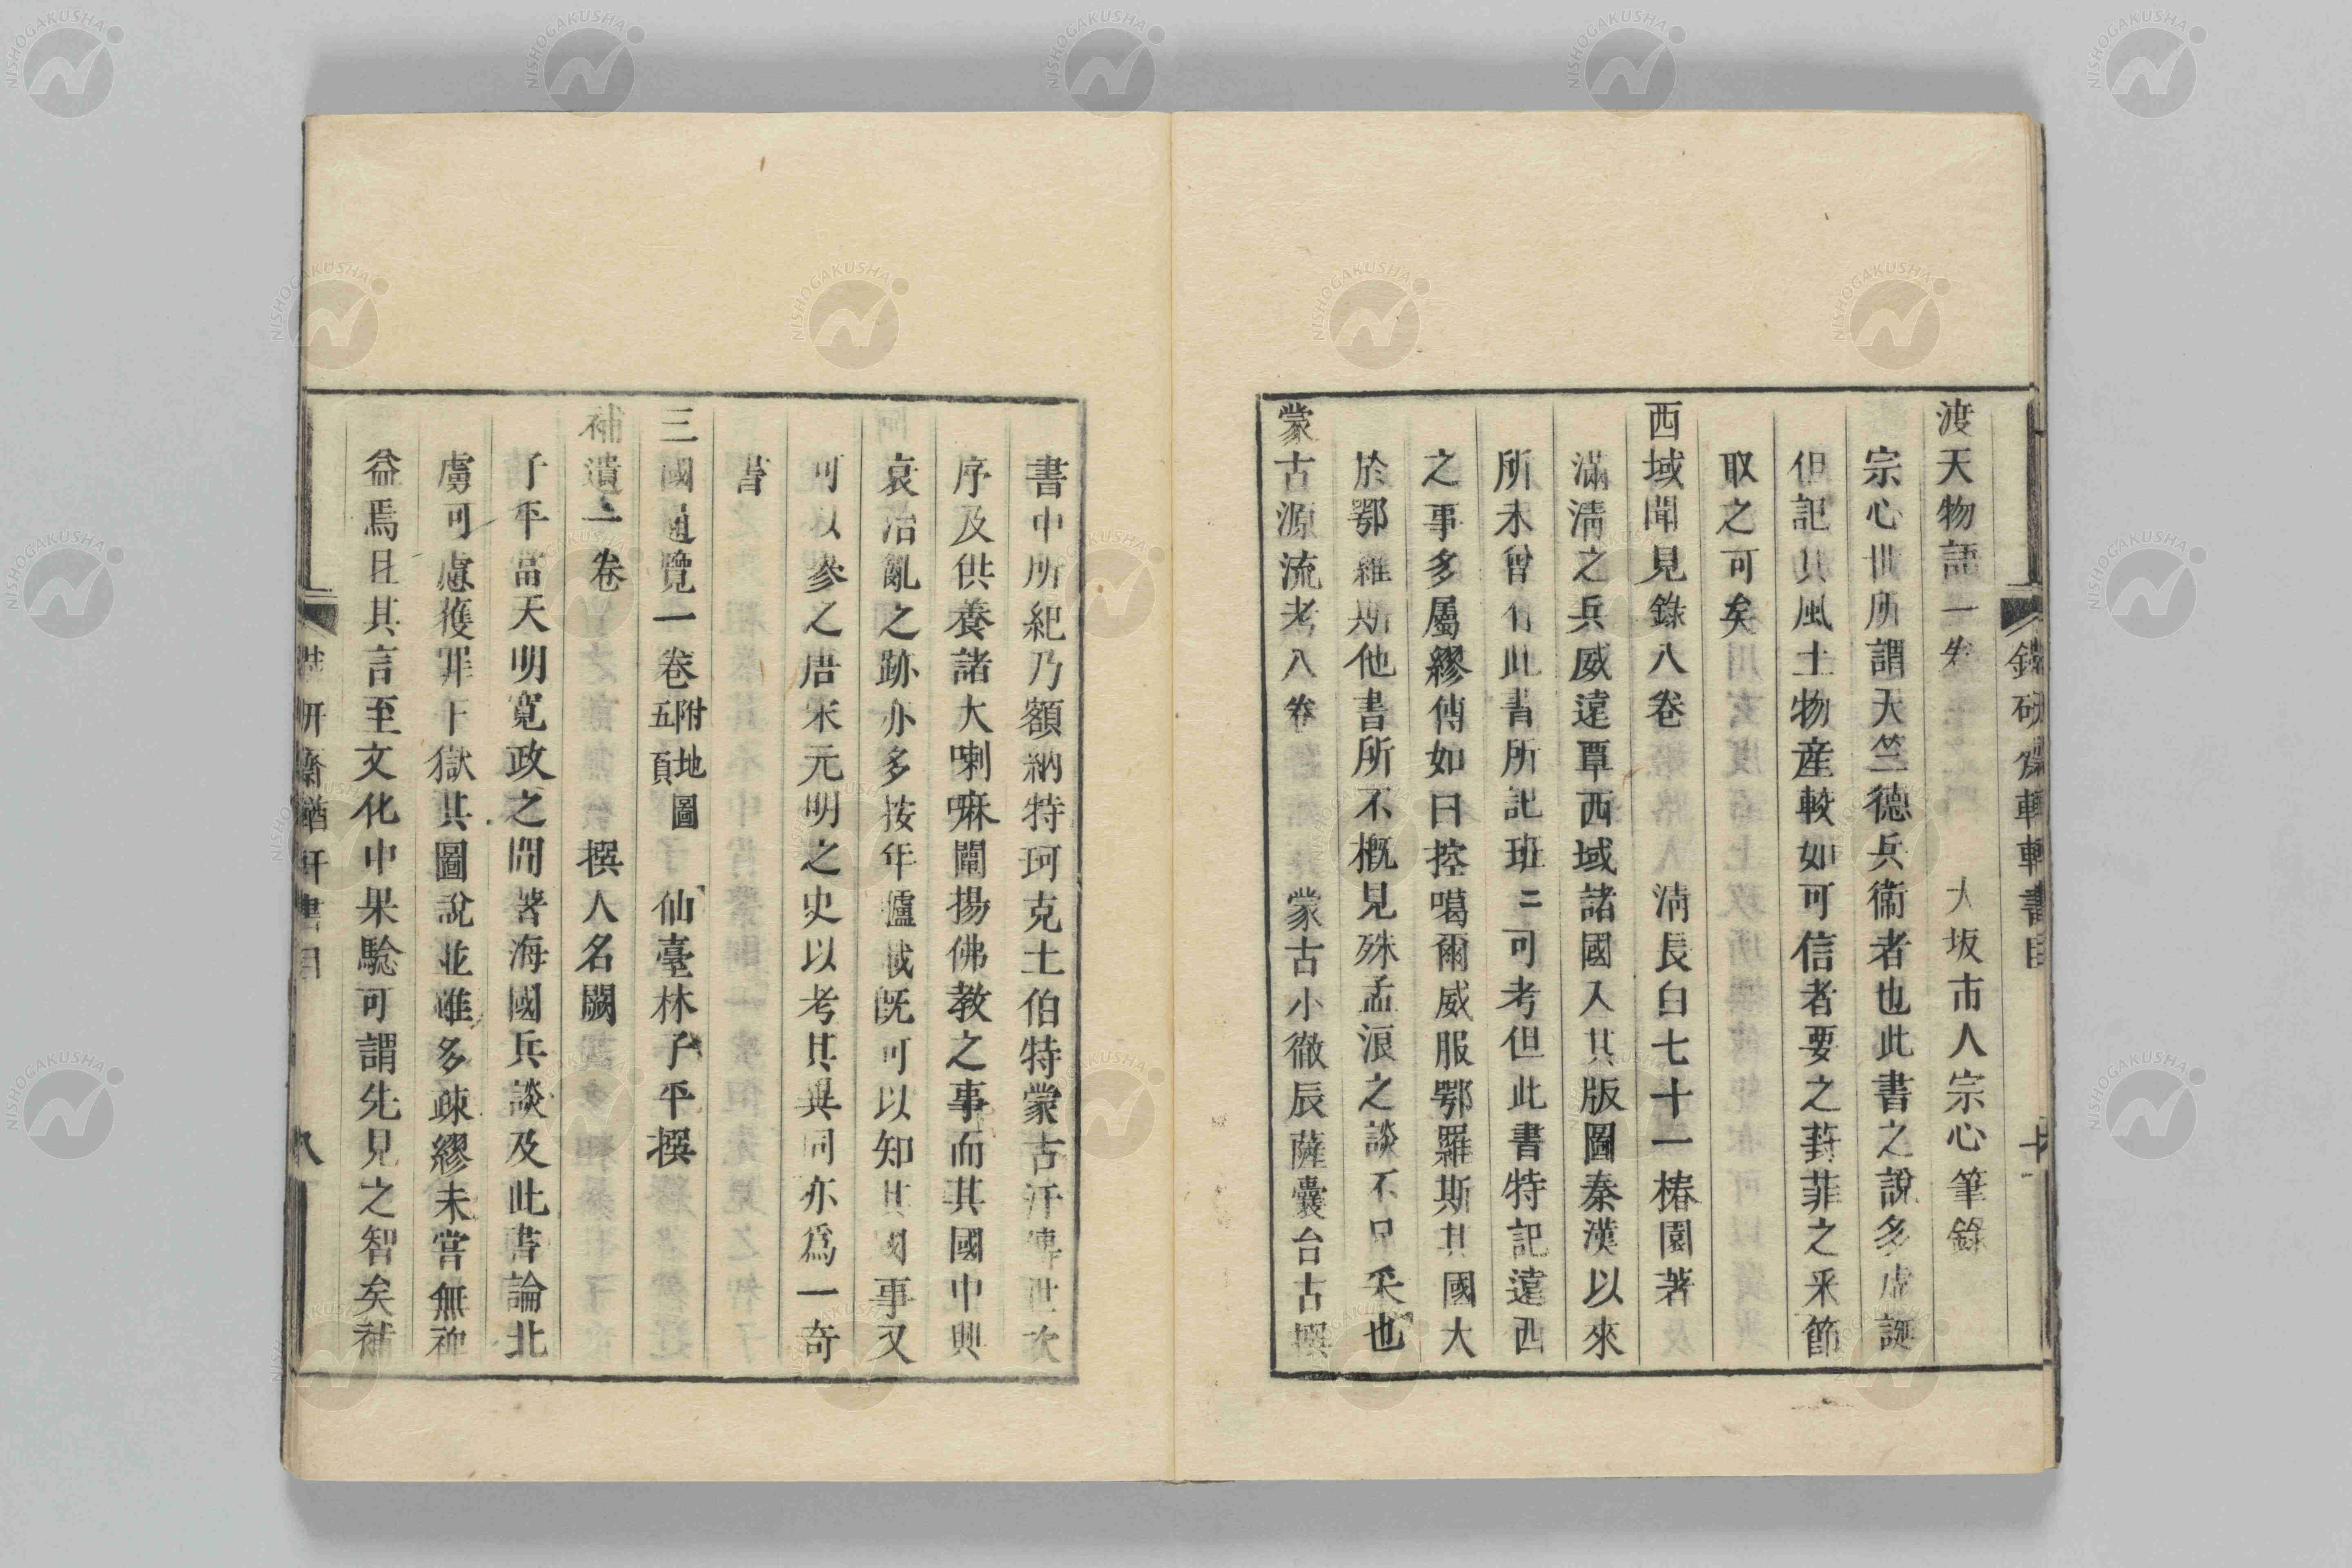 渡天物語一卷 大坂市人宗心筆錄
宗心世所謂天竺德兵衞者也此書之說多虛誕
但記其風土物産較如可信者要之葑菲之采節
取之可矣
西域聞見錄八卷 淸長白七十一椿園著
滿淸之兵威遠覃西域諸國入其版圖秦漢以來
所未曾有此書所記班二可考但此書特記遠西
之事多屬繆傳如曰控噶爾威服鄂羅斯其國大
於鄂羅斯他書所不槪見殊孟浪之談不足采也
蒙古源流考八卷 蒙古小徹辰薩囊台吉撰
書中所紀乃額納特珂克土伯特蒙古汗傳世次
序及供養諸大喇嘛闡揚佛敎之事而其國中興
衰治亂之跡亦多按年臚載旣可以知其國事又
可以參之唐宋元明之史以考其異同亦爲一奇
書
三國通覽一卷附地圖五頁 仙臺林子平撰
補遺一卷 撰人名闕
子平當天明寬政之間著海國兵談及此書論北
虜可慮獲罪下獄其圖說並雖多疎繆未嘗無裨
益焉且其言至文化中果驗可謂先見之智矣補